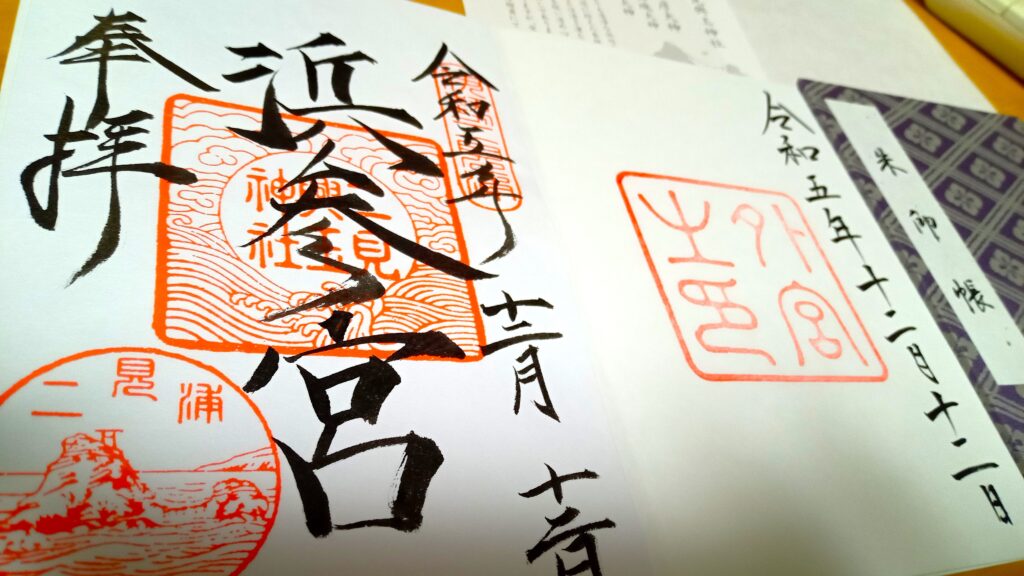 朱印帳
令和五年十二月十二日
外宮
之印
令和五年
十二月
十二日
浜参宮
二見
興玉
神社
奉拝
二見浦